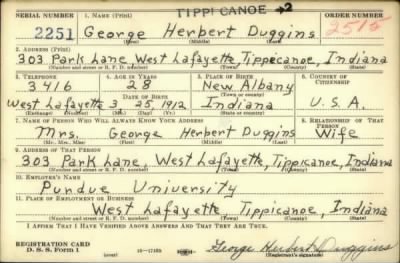 TIPPICANOE →2
SERIAL NUMBER 1. NAME (Print) ORDER NUMBER
2251 George Herbert Duggins 2515
(First) (Middle) (Last)
2. ADDRESS (Print)
303 Park Lane West Lafayette, Tippecanoe, Indiana
(Number and street or R. F. D. number) (Town) (County) (State)
3. TELEPHONE 4. AGE IN YEARS 5. PLACE OF BIRTH 6. COUNTRY OF CITIZENSHIP
3416 28 New Albany
DATE OF BIRTH (Town or county)
West Lafayette 3 25, 1912 Indiana U.S.A.
(Exchange) (Number) (Mo.) (Day) (Yr.) (State or country)
7. NAME OF PERSON WHO WILL ALWAYS KNOW YOUR ADDRESS 8. RELATIONSHIP OF THAT PERSON
Mrs. George Herbert Duggins Wife
(Mr., Mrs., Miss) (First) (Middle) (Last)
9. ADDRESS OF THAT PERSON
303 Park Lane, West Lafayette, Tippicanoe, Indiana
(Number and street or R. F. D. number) (Town) (County) (State)
10. EMPLOYER'S NAME
Purdue University
11. PLACE OF EMPLOYMENT OR BUSINESS
West Lafayette Tippicanoe, Indiana
(Number and street or R. F. D. number) (Town) (County) (State)
I AFFIRM THAT I HAVE VERIFIED ABOVE ANSWERS AND THAT THEY ARE TRUE.
REGISTRATION CARD
D. S. S. Form 1 (over) George Herbert Duggins
(Registrant's signature)